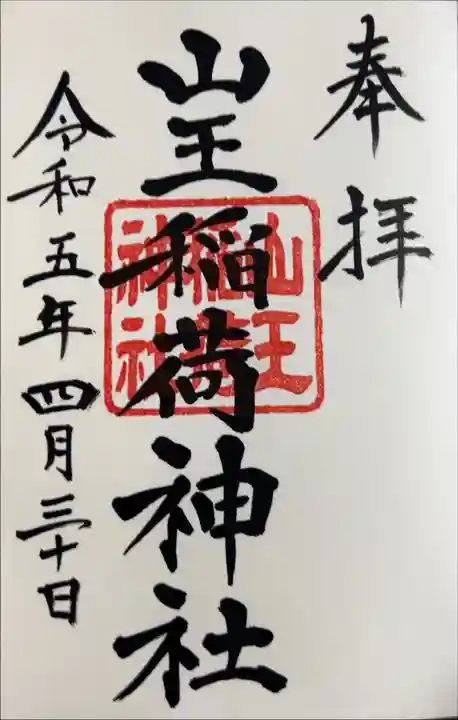 奉拝
山王稲荷神社
山王
稲荷
神社
令和五年四月三十日